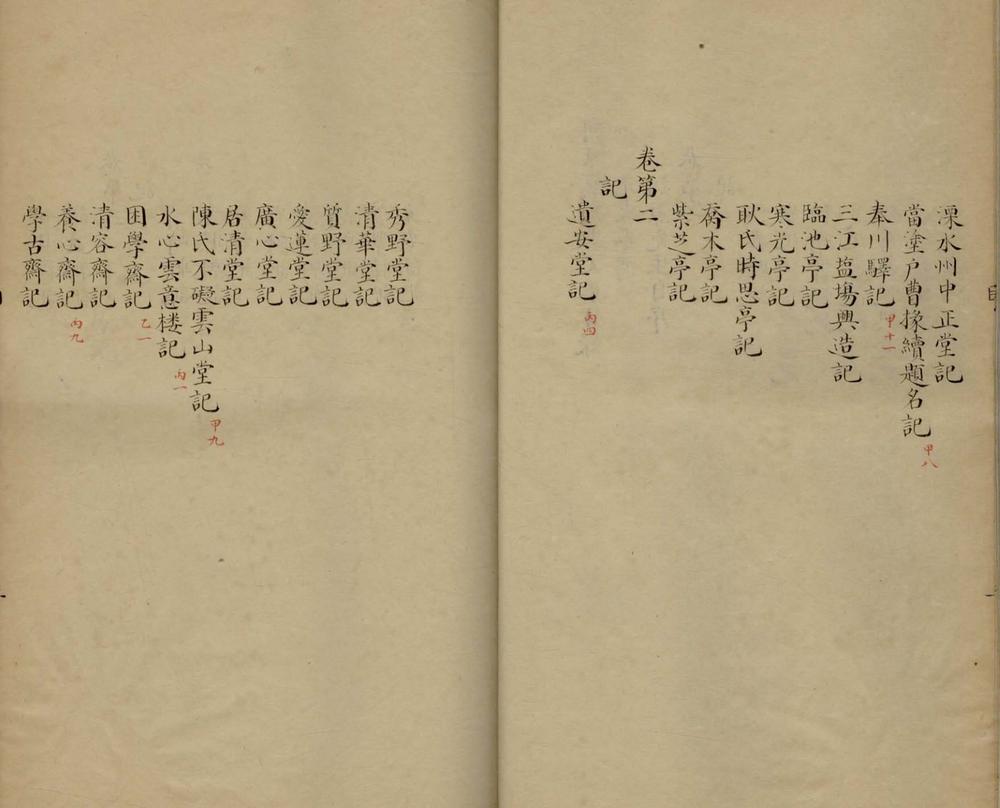 溧水州中正堂記
當塗户曹掾續題名記
甲八
奉川驛記
甲十一
三江盐塲興造記
臨池亭記
寒光亭記
耿氏時思亭記
喬木亭記
紫芝亭記
卷第二
記
遺安堂記
丙四
秀野堂記
清華堂記
質野堂記
愛蓮堂記
廣心堂記
居清堂記
陳氏不礙雲山堂記
甲九
水心雲意楼記
丙一
困學齋記
乙一
清容齋記
養心齋記
丙九
學古齋記